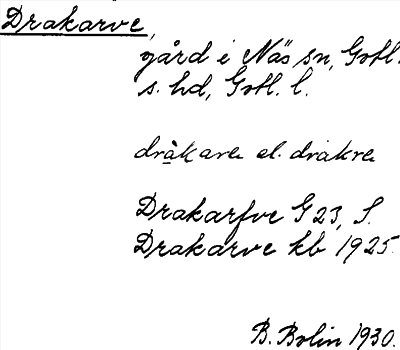 Drakarve,
gård i Näs sn, Gotl.
s. hd, Gotl. l.
dràkarve el. drakre
Drakarfve G 23, S.
Drakarve kb 1925.
B. Bolin 1930.